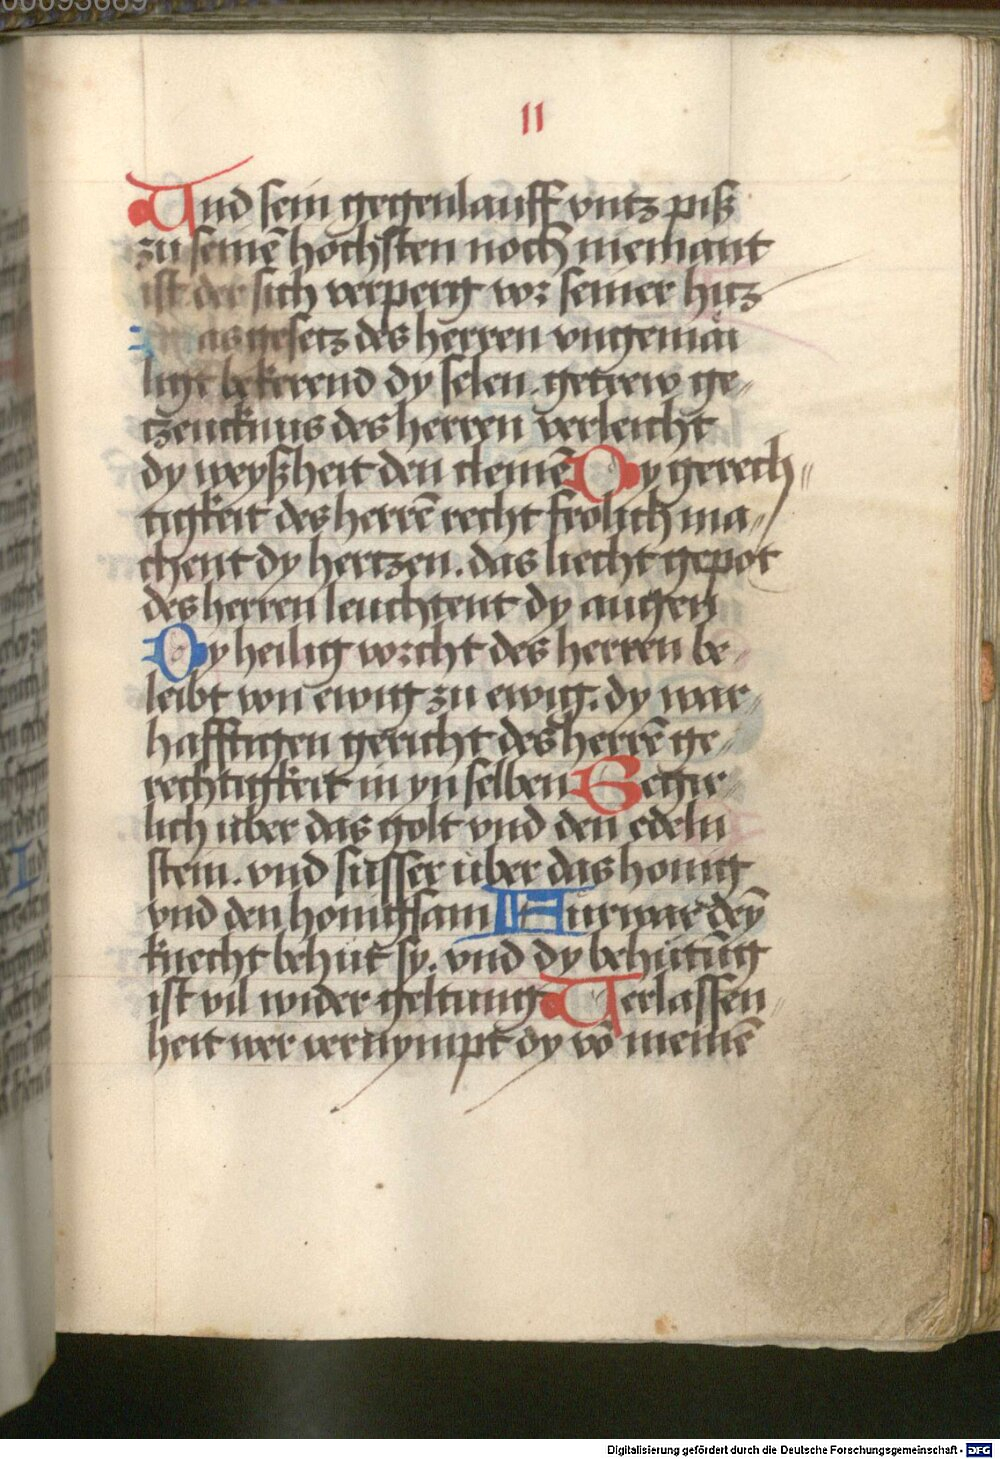 00095669
11
Und sein gegenlauff vntz piß
zu seinē hochsten noch niemant
ist der sich verperg vor seiner hitz
as gesetz des herren vngemai
ligt bekerend dy selen. getrew ge⸗
tzeucknus des herren verleicht
dy weyßheit den clemē Dy gerech⸗
tigkeit des herrē recht frolich ma⸗
chent dy hertzen. das liecht gepot
des herren leuchtent dy augen
Dy heilig vorcht des herren be⸗
leibt von ewig zu ewig. dy war⸗
hafftigen gericht des herrē ge⸗
rechtigkeit in yn selben Begir⸗
lich uber das golt vnd den edeln
stein. vnd susser uber das honig
vnd den honigsam Furwar deȳ
knecht behut sy. vnd dy behutūg
ist vil wider geltung Verlassen⸗
heit wer vernympt dy vō meinē
Digitalisierung gefördert durch die Deutsche Forschungsgemeinschaft - DFG